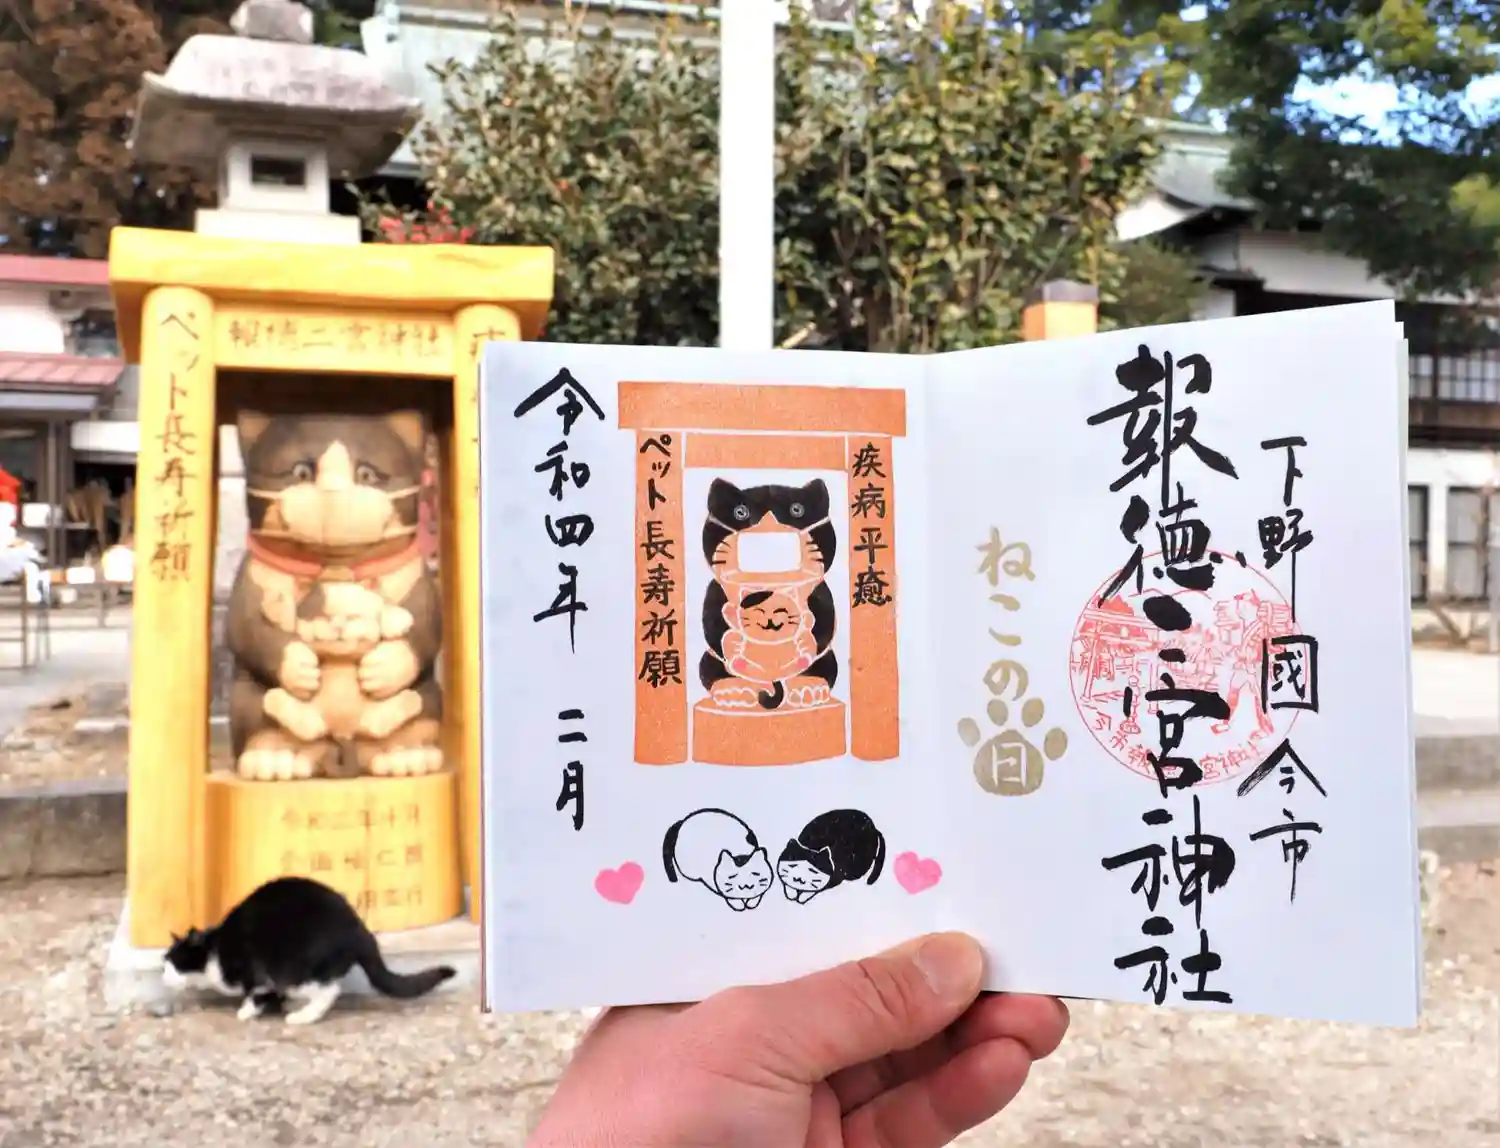 下野國今市
報徳二宮神社
ねこの日
疾病平癒
ペット長寿祈願
令和四年 二月
報徳二宮神社
ペット長寿祈願